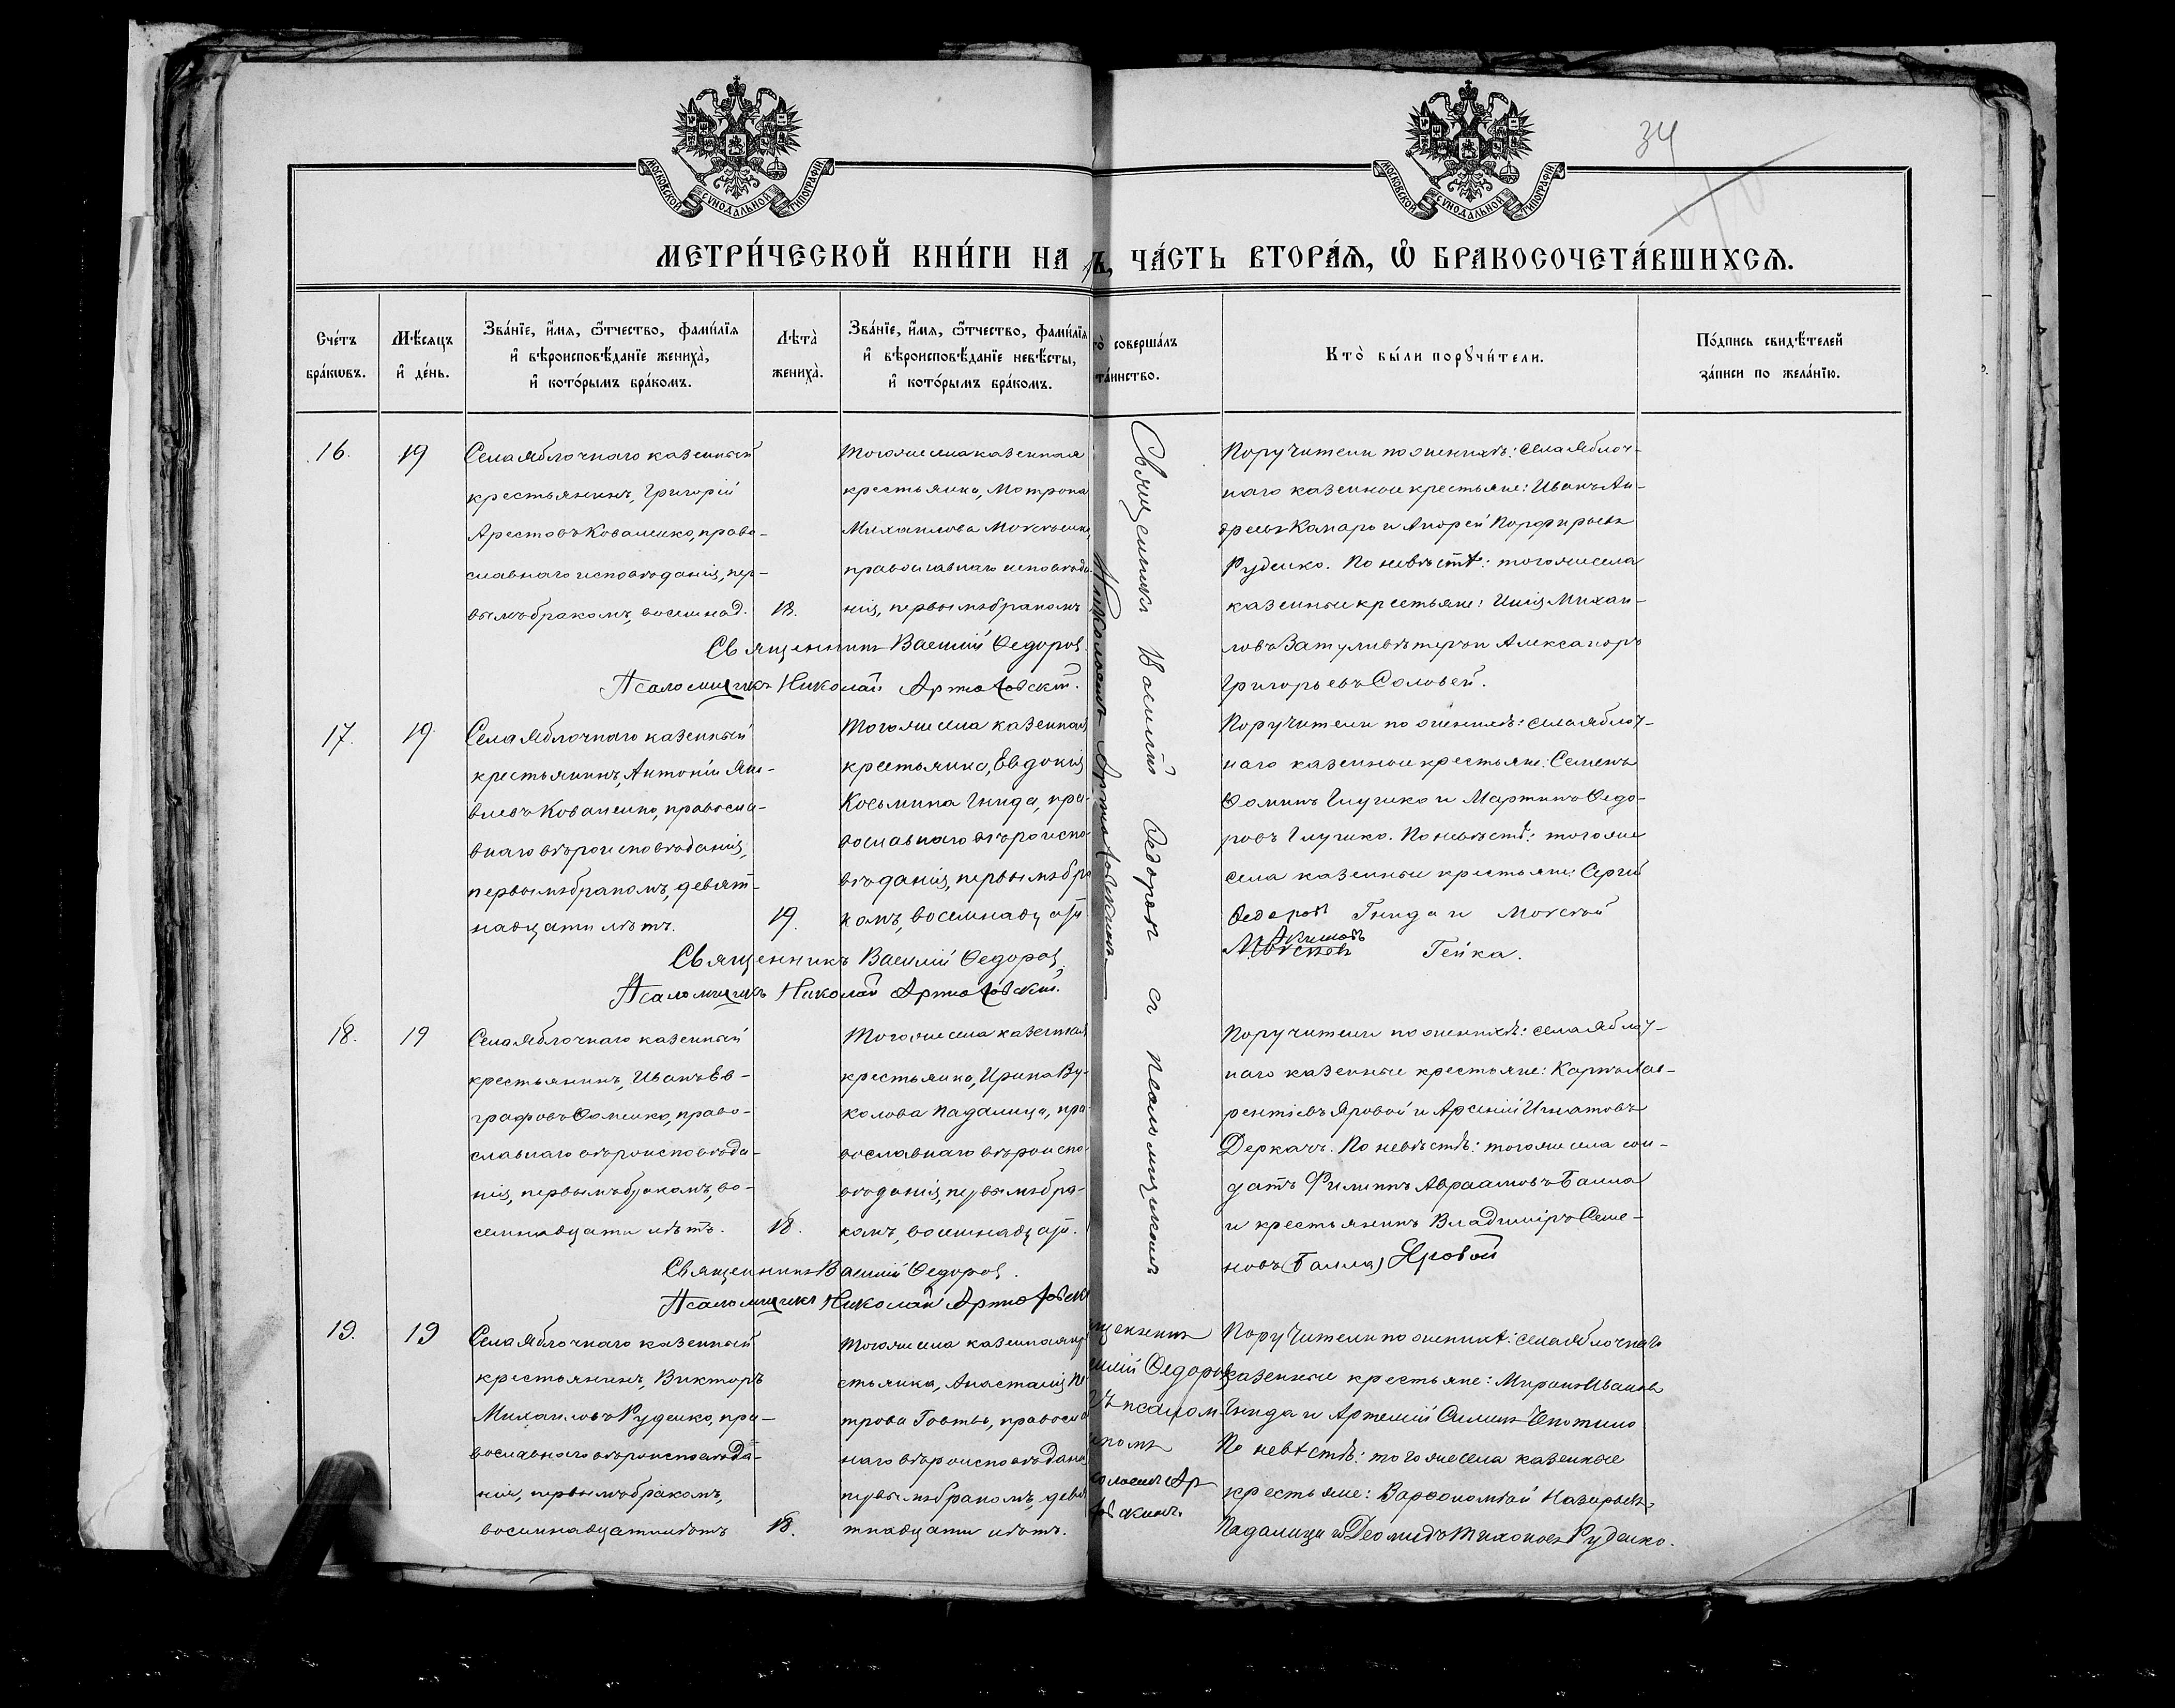 34
МОСКОВСКОЙ СѴНОДАЛЬНОЙ ТИПОГРАФІИ
МОСКОВСКОЙ СѴНОДАЛЬНОЙ ТИПОГРАФІИ
МЕТРИ́ЧЕСКОЙ КНИ́ГИ НА
Ъ, ЧА́СТЬ ВТОРА́Ѧ, Ѽ БРАКОСОЧЕТА́ВШИХСѦ.
Сче́тъ
бра́кѡвъ.
Мѣ́сяцъ
и҆ де́нь.
Зва́нїе, и҆́мя, ѻ҆́тчество, фами́лїя
и҆ вѣроисповѣ́данїе жениха̀,
и҆ кото́рымъ бра́комъ.
Лѣта̀
жениха̀.
Зва́нїе, и҆́мя, ѻ҆́тчество, фами́лїя
и҆ вѣроисповѣ́данїе невѣ́сты,
и҆ кото́рымъ бра́комъ.
то̀ соверша́лъ
та́инство.
Кто̀ бы́ли порꙋчи́тели.
По́дпись свидѣ́телей
за́писи по жела́нїю.
16.
19
Села Яблочнаго казенный
крестьянинъ, Григорій
Арестовъ Коваленко, право-
славнаго исповѣданія, пер-
вымъ бракомъ, восемнад.
18.
Того же села казенная
крестьянка, Матрона
Михаилова
православнаго исповѣда-
нія, первымъ бракомъ
Священникъ Василій Федоровъ
Псаломщикъ Николай Артюховскій.
Священникъ Василій Федоровъ съ псаломщикомъ
Николаемъ Артюховскимъ
Поручители по женихѣ: села Яблоч-
наго казенные крестьяне: Иванъ Ан-
дреевъ Комаръ и Андрей Порфирьевъ
Руденко. По невѣстѣ: того же села
казенные крестьяне: Илія Михаи-
ловъ Затуливѣтеръ и Александръ
Григорьевъ Соловей.
17.
19
Села Яблочнаго казенный
крестьянинъ, Антоній Яко-
влевъ Коваленко, правосла-
внаго вѣроисповѣданія,
первымъ бракомъ, девят-
надцати лѣтъ.
19.
Того же села казенная
крестьянка, Евдокія
Косьмина Гнида, пра-
вославнаго вѣроиспо-
вѣданія, первымъ бра-
комъ, восемнадцати.
Священникъ Василій Федоровъ
Псаломщикъ Николай Артюховскій.
Поручители по женихѣ: села Яблоч-
наго казенные крестьяне: Семенъ
Фоминъ Глушко и Мартинъ Федо-
ровъ Глушко. По невѣстѣ: того же
села казенные крестьяне: Сергій
Федоровъ Гнида и Моисей
Акимовъ
Гейка.
18.
19
Села Яблочнаго казенный
крестьянинъ, Иванъ Ев-
графовъ Фоменко, право-
славнаго вѣроисповѣда-
нія, первымъ бракомъ, во-
семнадцати лѣтъ.
18.
Того же села казенная
крестьянка, Ирина Ву-
колова Падалица, пра-
вославнаго вѣроиспо-
вѣданія, первымъ бра-
комъ, восемнадцати.
Священникъ Василій Федоровъ.
Псаломщикъ Николай Артюховскі
Поручители по женихѣ: села Яблоч-
наго казенные крестьяне: Карпъ Лав-
рентіевъ Яровой и Арсеній Игнатовъ
Деркачъ. По невѣстѣ: того же села сол-
датъ Филиппъ Авраамовъ Балла
и крестьянинъ Владиміръ Семе-
новъ (Балла) Яровой
19.
19
Села Яблочнаго казенный
крестьянинъ, Викторъ
Михаиловъ Руденко, пра-
вославнаго вѣроисповѣда-
нія, первымъ бракомъ,
восемнадцати лѣтъ
18.
Того же села казенная кре
стьянка, Анастасія Пе
трова Говтва, правосла
наго вѣроисповѣдані
первымъ бракомъ, девя
тнадцати лѣтъ.
щенникъ
илій Федоровъ
съ псалом-
икомъ
колаемъ Ар
ховскимъ.
Поручители по женихѣ: села Яблочнаго
казенные крестьяне: Миронъ Ивановъ
Гнида и Артемій
По невѣстѣ: того же села казенные
крестьяне: Варфоломей Назарьевъ
Падалица и Деомидъ Тихоновъ Руденко.